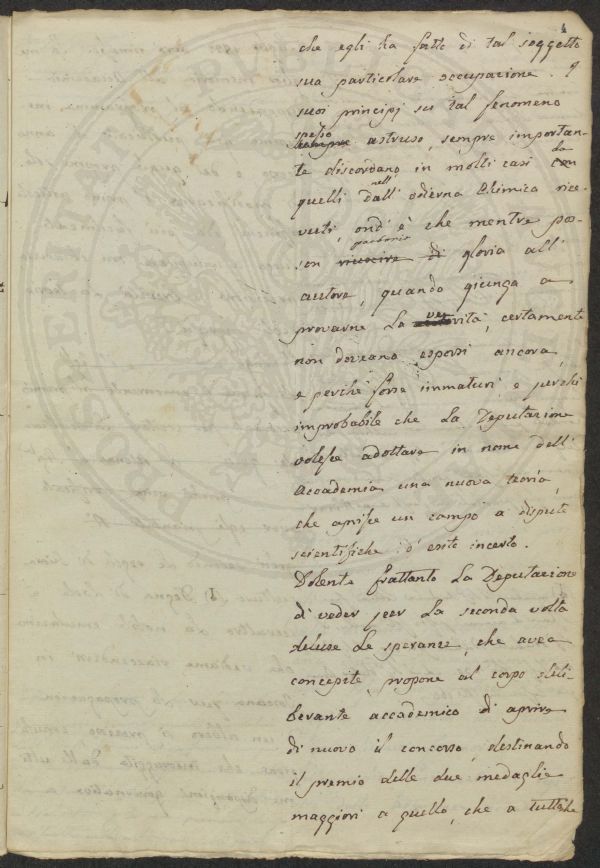 4
che egli ha fatto di tal soggetto
sua particolare occupazione. I
suoi principj su tal fenomeno
spesso
sempre astruso, sempre importan-
te discordano in molti casi con da
quelli dall' nell' odierna Chimica rice-
vuti, ond' è che mentre pos-
son riuscire di partorir gloria all'
autore, quando giunga a
provarne la verità, certamente
non doveano esporsi ancora,
e perchè forse immaturi, e perchè
improbabile che la Deputazione
volesse adottare in nome dell'
Accademia una nuova teoria,
che aprisse un campo a dispute
scientifiche d'esito incerto.
Dolente frattanto la Deputazione
di veder per la seconda volta
deluse le speranze, che avea
concepite, propone al corpo deli-
berante accademico di aprire
di nuovo il concorso, destinando
il premio delle due medaglie
maggiori a quello, che a tutto